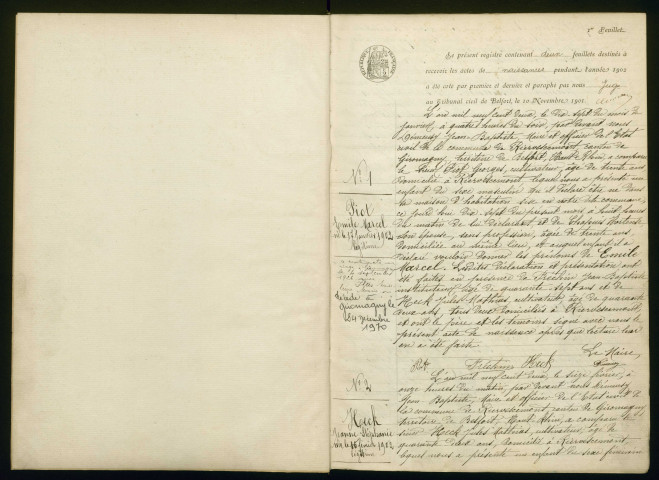 1er Feuillet
Le présent registre contenant deux feuillets destinés à
recevoir les actes de naissances pendant l'année 1902
a été coté par premier et dernier et paraphé par nous Juge
au Tribunal civil de Belfort, le 10 Novembre 1901.
L'an mil neuf cent deux, le dix sept du mois de
janvier, à quatre heures du soir, par devant nous
Jean Baptiste, Maire et officier de l'Etat
civil de la commune de Riervescemont, canton de
Giromagny, territoire de Belfort, Haut Rhin, a comparu
le sieur Piot Georges, cultivateur, âgé de trente ans
domicilié à Riervescemont, lequel nous a présenté un
enfant du sexe masculin qu'il déclare être né dans
sa maison d'habitation sise en notre dite commune,
ce jourd'hui dix sept du présent mois à huit heures
du matin de lui déclarant, et de Hortense
son épouse, sans profession, âgée de trente ans,
domiciliée au même lieu, et auquel enfant il a
déclaré vouloir donner les prénoms de Emile
Marcel. Lesdites déclaration et présentation ont
été faites en présence de Jean Baptiste
instituteur, âgé de quarante sept ans et de
Heck Jules Mathias, cultivateur, âgé de quarante
deux ans, tous deux domiciliés à Riervescemont,
et ont le père et les témoins signé avec nous le
présent acte de naissance après que lecture leur
en a été faite.
Piot Heck Le Maire
L'an mil neuf cent deux, le seize février, à
onze heures du matin, par devant nous
Jean Baptiste, Maire et officier de l'Etat civil de
la commune de Riervescemont, canton de Giromagny
territoire de Belfort, Haut Rhin, a comparu le
sieur Heck Jules Mathias, cultivateur, âgé de
quarante deux ans, domicilié à Riervescemont,
lequel nous a présenté un enfant du sexe féminin
N° 1
Piot
Emile Marcel
né le 17 Janvier 1902
Légitime
Décédé à
Giromagny le
24 décembre
1970
N° 2
Heck
Jeanne Stéphanie
née le 16 février 1902
Légitime